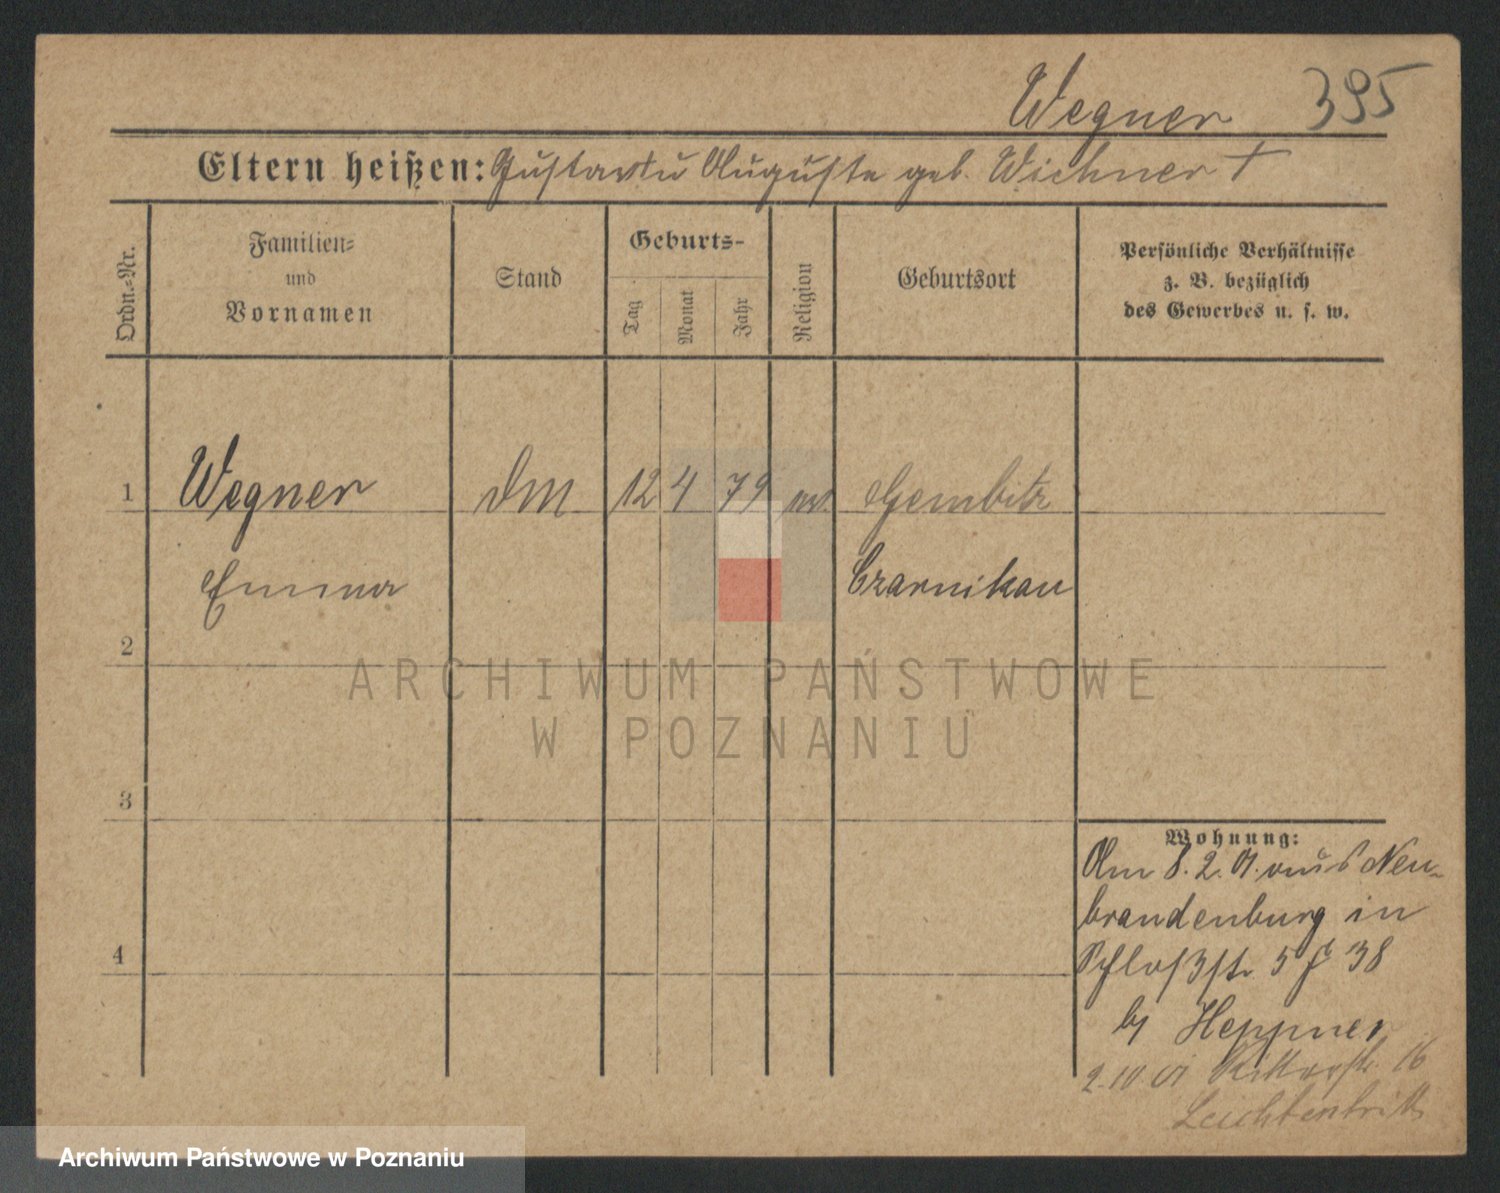 Wegner 395
Eltern heißen: Gustav u Auguste geb. Wichner †
Ordn.-Nr.
Familien-
und
Vornamen
Stand
Geburts-
Tag
Monat
Jahr
Religion
Geburtsort
Persönliche Verhältnisse
z. B. bezüglich
des Gewerbes u. s. w.
1 Wegner DM 12 4 79 ev. Gembitz
Emma Czarnikau
2
ARCHIWUM PAŃSTWOWE
W POZNANIU
3
Wohnung:
Am 8. 2. 01. aus Neu-
brandenburg in
4
Schloßstr 5 38
by Heppner
2.10 01 Ritterstr. 16
Leichtentritt
Archiwum Państwowe w Poznaniu